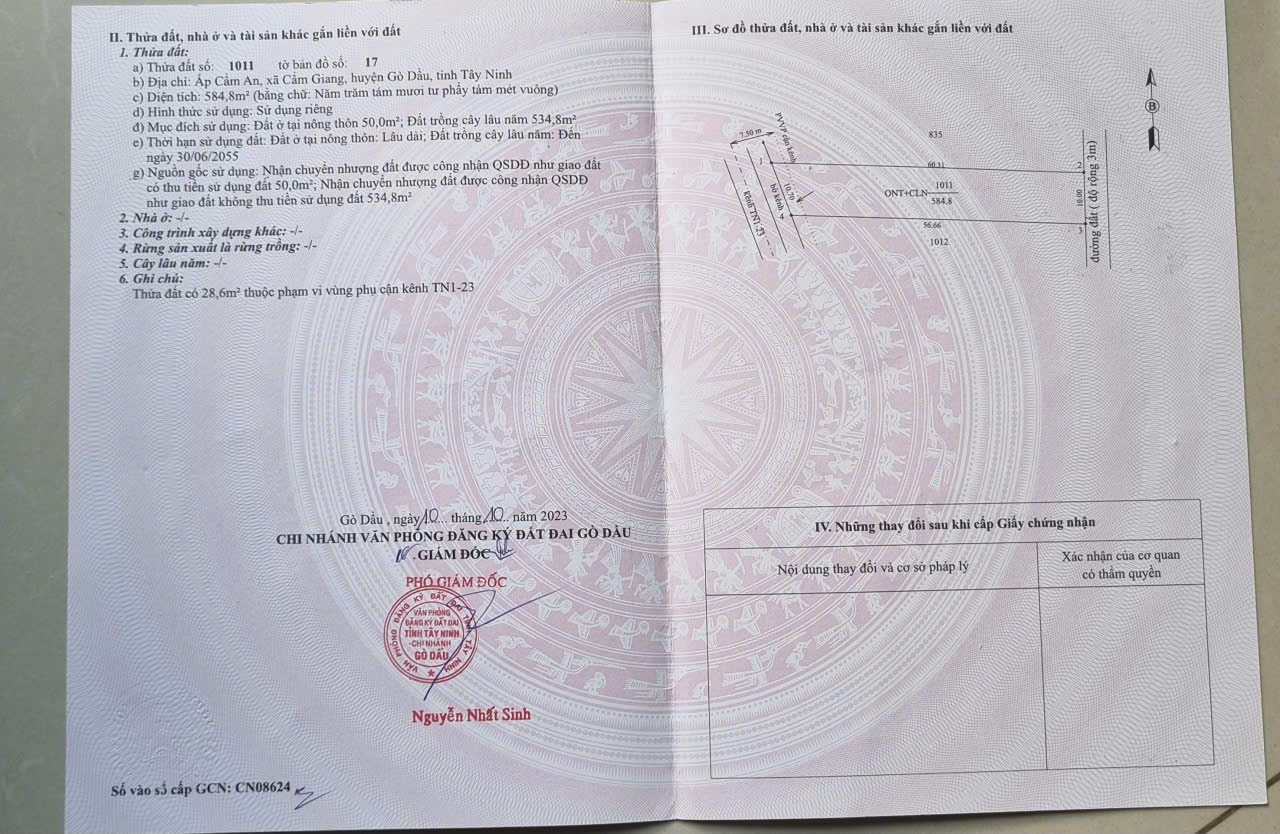 II. Thửa đất, nhà ở và tài sản khác gắn liền với đất
1. Thửa đất:
a) Thửa đất số: 1011 tờ bản đồ số: 17
b) Địa chỉ: Ấp Cẩm An, xã Cẩm Giang, huyện Gò Dầu, tỉnh Tây Ninh
c) Diện tích: 584,8m² (bằng chữ: Năm trăm tám mươi tư phẩy tám mét vuông)
d) Hình thức sử dụng: Sử dụng riêng
đ) Mục đích sử dụng: Đất ở tại nông thôn 50,0m²; Đất trồng cây lâu năm 534,8m²
e) Thời hạn sử dụng: Đất ở tại nông thôn: Lâu dài; Đất trồng cây lâu năm: Đến
ngày 30/06/2055
g) Nguồn gốc sử dụng: Nhận chuyển nhượng đất được công nhận QSDĐ như giao đất
có thu tiền sử dụng đất 50,0m²; Nhận chuyển nhượng đất được công nhận QSDĐ
như giao đất không thu tiền sử dụng đất 534,8m²
2. Nhà ở: -/-
3. Công trình xây dựng khác: -/-
4. Rừng sản xuất là rừng trồng: -/-
5. Cây lâu năm: -/-
6. Ghi chú:
Thửa đất có 28,6m² thuộc phạm vi vùng phụ cận kênh TN1-23
Gò Dầu , ngày 10 tháng 10 năm 2023
CHI NHÁNH VĂN PHÒNG ĐĂNG KÝ ĐẤT ĐAI GÒ DẦU
GIÁM ĐỐC
PHÓ GIÁM ĐỐC
VĂN PHÒNG ĐĂNG KÝ ĐẤT ĐAI TỈNH TÂY NINH
VĂN PHÒNG
ĐĂNG KÝ ĐẤT ĐAI
TỈNH TÂY NINH
-CHI NHÁNH
GÒ DẦU
Nguyễn Nhất Sinh
Số vào sổ cấp GCN: CN08624
III. Sơ đồ thửa đất, nhà ở và tài sản khác gắn liền với đất
B
7.50 m
PVVP cận kênh
835
1
60.31
2
10.70
bờ kênh
kênh TN1-23
ONT+CLN
1011
584.8
10.00
đường đất ( độ rộng 3m)
4
56.66
3
1012
IV. Những thay đổi sau khi cấp Giấy chứng nhận
Nội dung thay đổi và cơ sở pháp lý
Xác nhận của cơ quan
có thẩm quyền